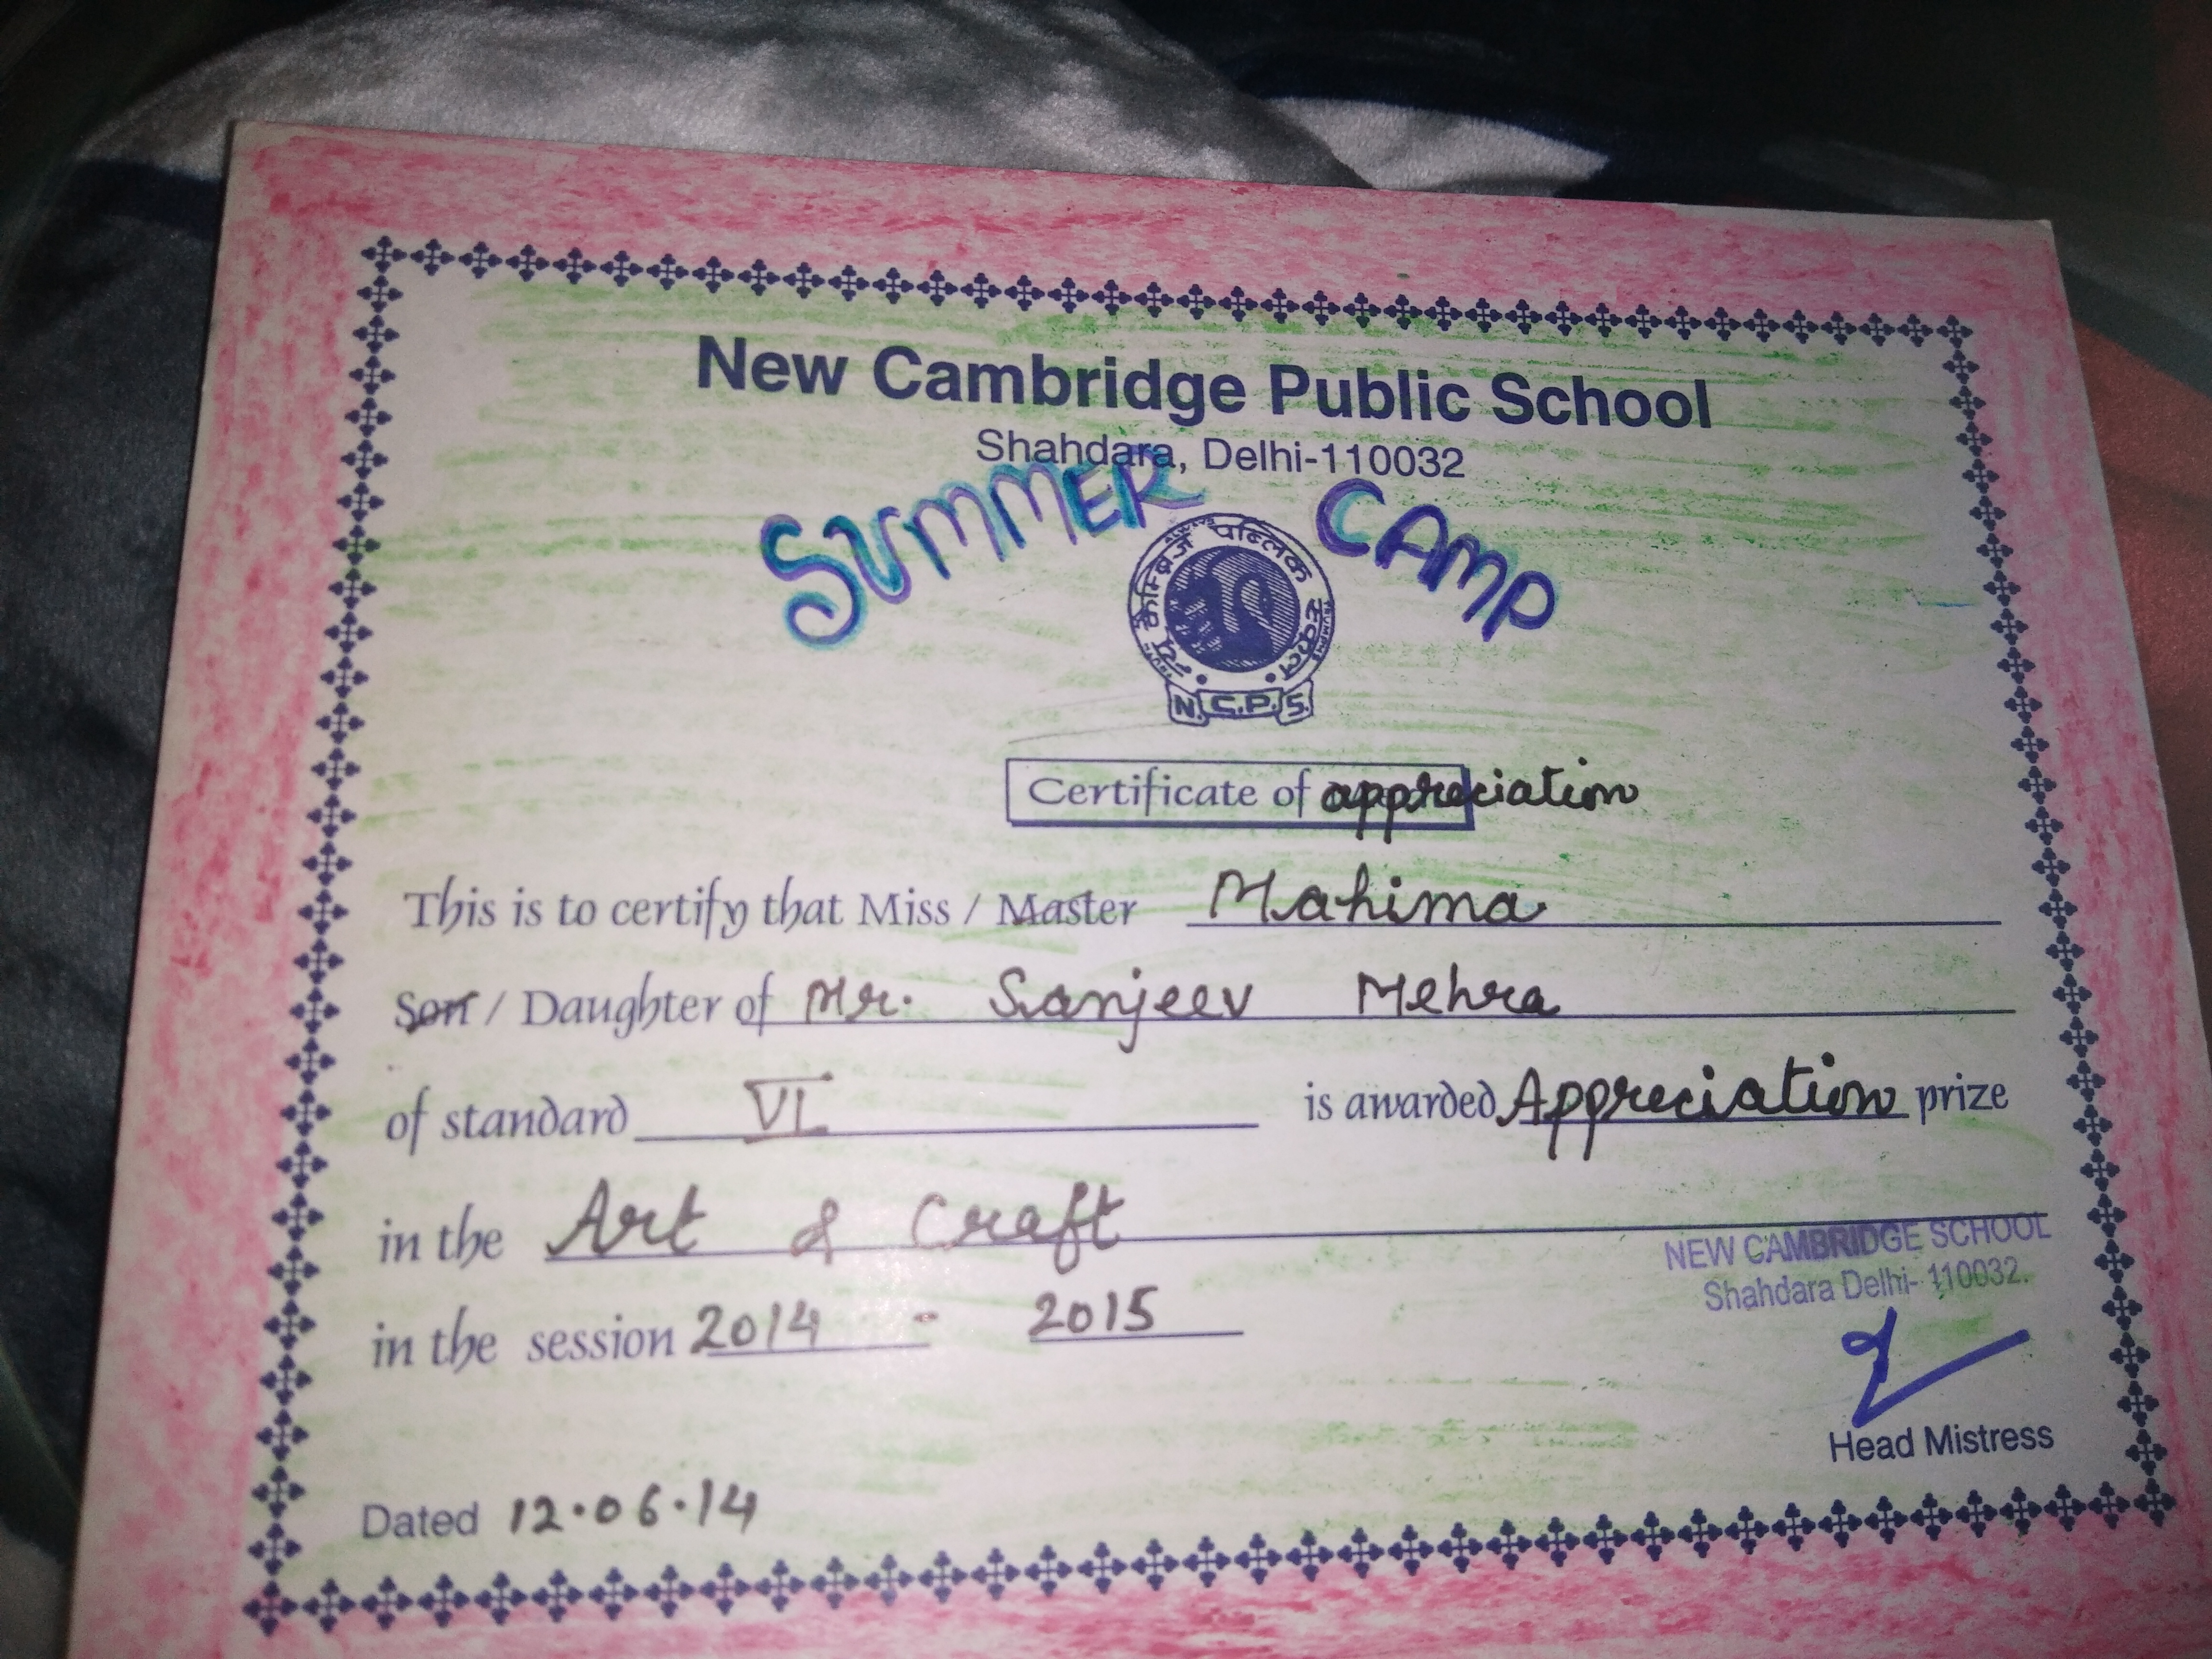 New Cambridge Public School
Shahdara, Delhi-110032
SUMMER CAMP
न्यू कैम्ब्रिज पब्लिक स्कूल
N.C.P.S.
Certificate of appreciation
This is to certify that Miss / Master Mahima
Son / Daughter of Mr. Sanjeev Mehra
of standard VI is awarded Appreciation prize
in the Art & Craft
in the session 2014 - 2015
NEW CAMBRIDGE SCHOOL
Shahdara Delhi- 110032.
Head Mistress
Dated 12.06.14